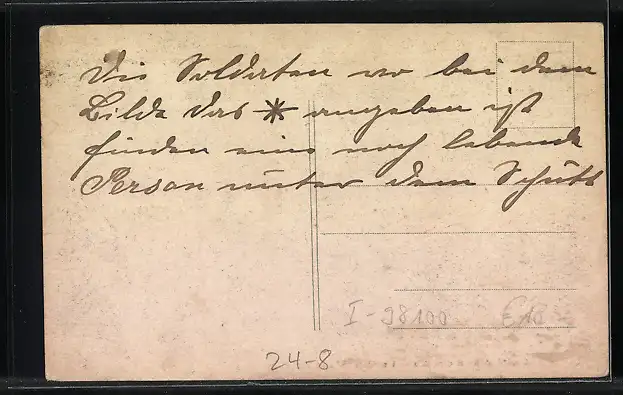 Die Soldaten wo bei dem
Bilde das * angeben ist
finden eine noch lebende
Person unter dem Schutt
I-98100
24-8